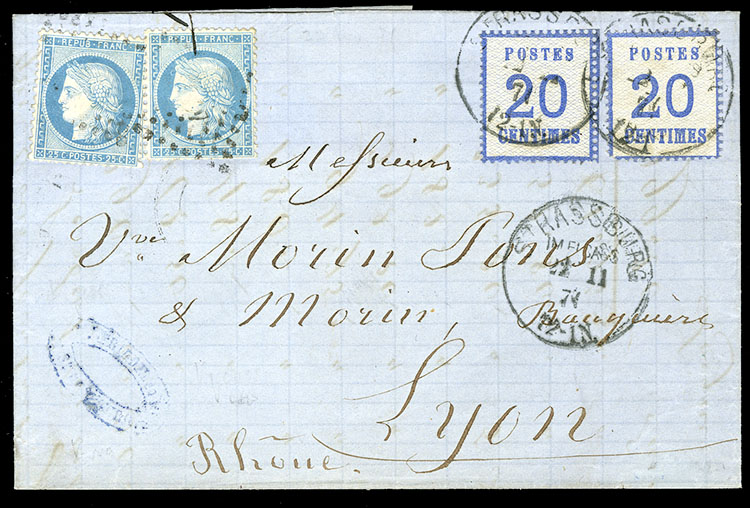 REPUB. FRANC.
25 C POSTES 25 C
REPUB. FRANC.
25 C POSTES 25 C
POSTES
20
CENTIMES
POSTES
20
CENTIMES
STRASSBURG
12-1N.
Messieurs
Vve Morin Pons
& Morin, Banquiers
Lyon
Rhône.
STRASSBURG
IM ELSASS
22 11
71
12-1N.